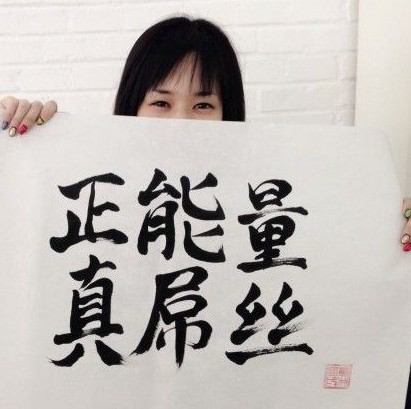 正能量
真屌丝